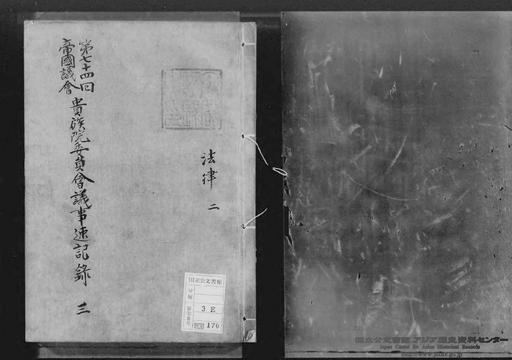 第七十四回
帝國議會
貴族院委員會議事速記録 三
法律 二
国立公文書館
分類
3E
170
国立公文書館 アジア歴史資料センター
Japan Center for Asian Historical Records